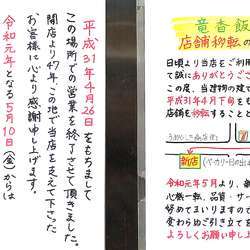 平成31年4月26日をもちまして
この場所での営業を終了させて頂きました。
開店より47年、この地で当店を支えて下さった
お客様に心より感謝申し上げます。
令和元年となる5月10日(金)からは
竜香飯
店舗移転の
日頃より当店をご利用
て誠にありがとうござ
この度、当建物の建
平成31年4月下旬をも
店舗を移転すること
新店
(ベーカリー日の出
令和元年5月より、新
心機一転、品質・サー
努めてまいりますので
変わらぬご引立て
よろしくお願い申し上